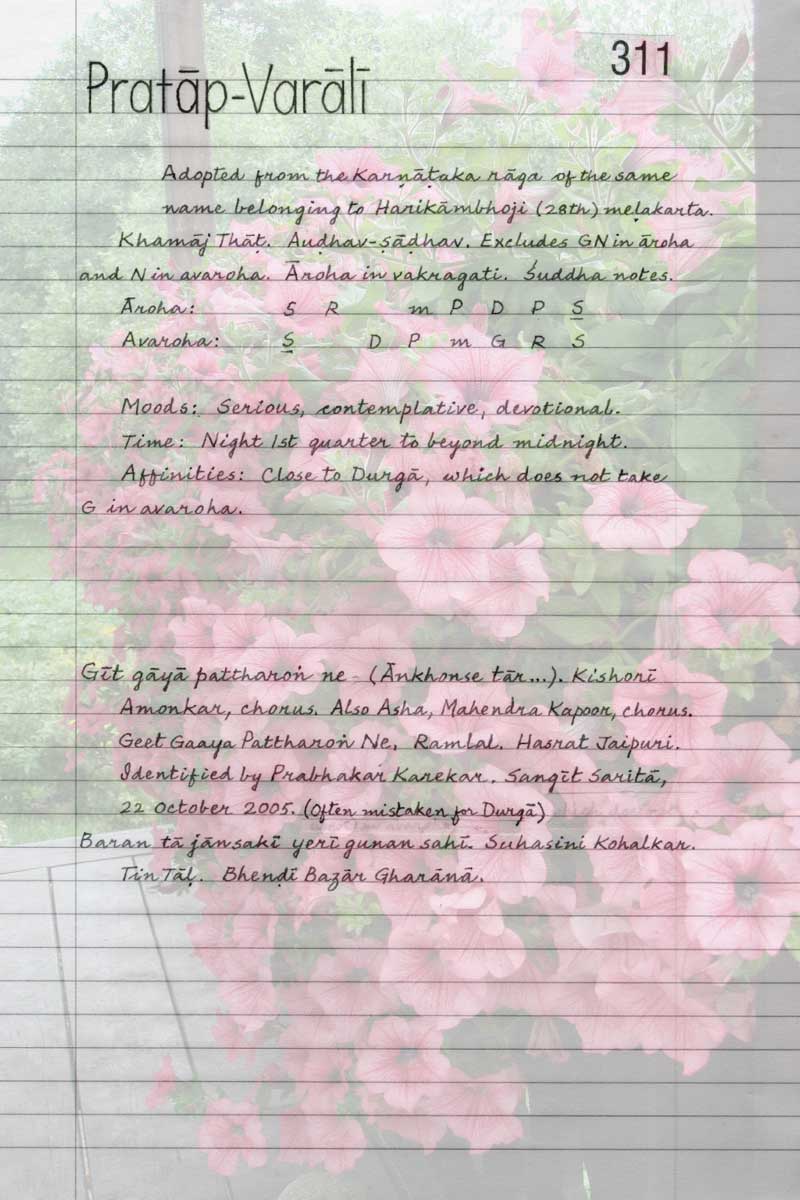 311
Pratāp-Varālī
Adopted from the Karṇāṭaka rāga of the same
name belonging to Harikāmbhoji (28th) meḷakarta.
Khamāj Thāṭ. Auḍhav-ṣāḍhav. Excludes GN in āroha
and N in avaroha. Āroha in vakragati. Śuddha notes.
Āroha: S R m P D P S̲
Avaroha: S̲ D P m G R S
Moods: Serious, contemplative, devotional.
Time: Night 1st quarter to beyond midnight.
Affinities: Close to Durgā, which does not take
G in avaroha.
Gīt gāyā pattharoṅ ne (Ānkhonse tār...). Kishorī
Amonkar, chorus. Also Asha, Mahendra Kapoor, chorus.
Geet Gaaya Pattharoṅ Ne, Ramlal. Hasrat Jaipuri.
Identified by Prabhakar Karekar. Sangīt Saritā,
22 October 2005. (Often mistaken for Durgā)
Baran tā jānsakī yerī gunan sahī. Suhasini Kohalkar.
Tin Tāḷ. Bhenḍi Bazār Gharānā.